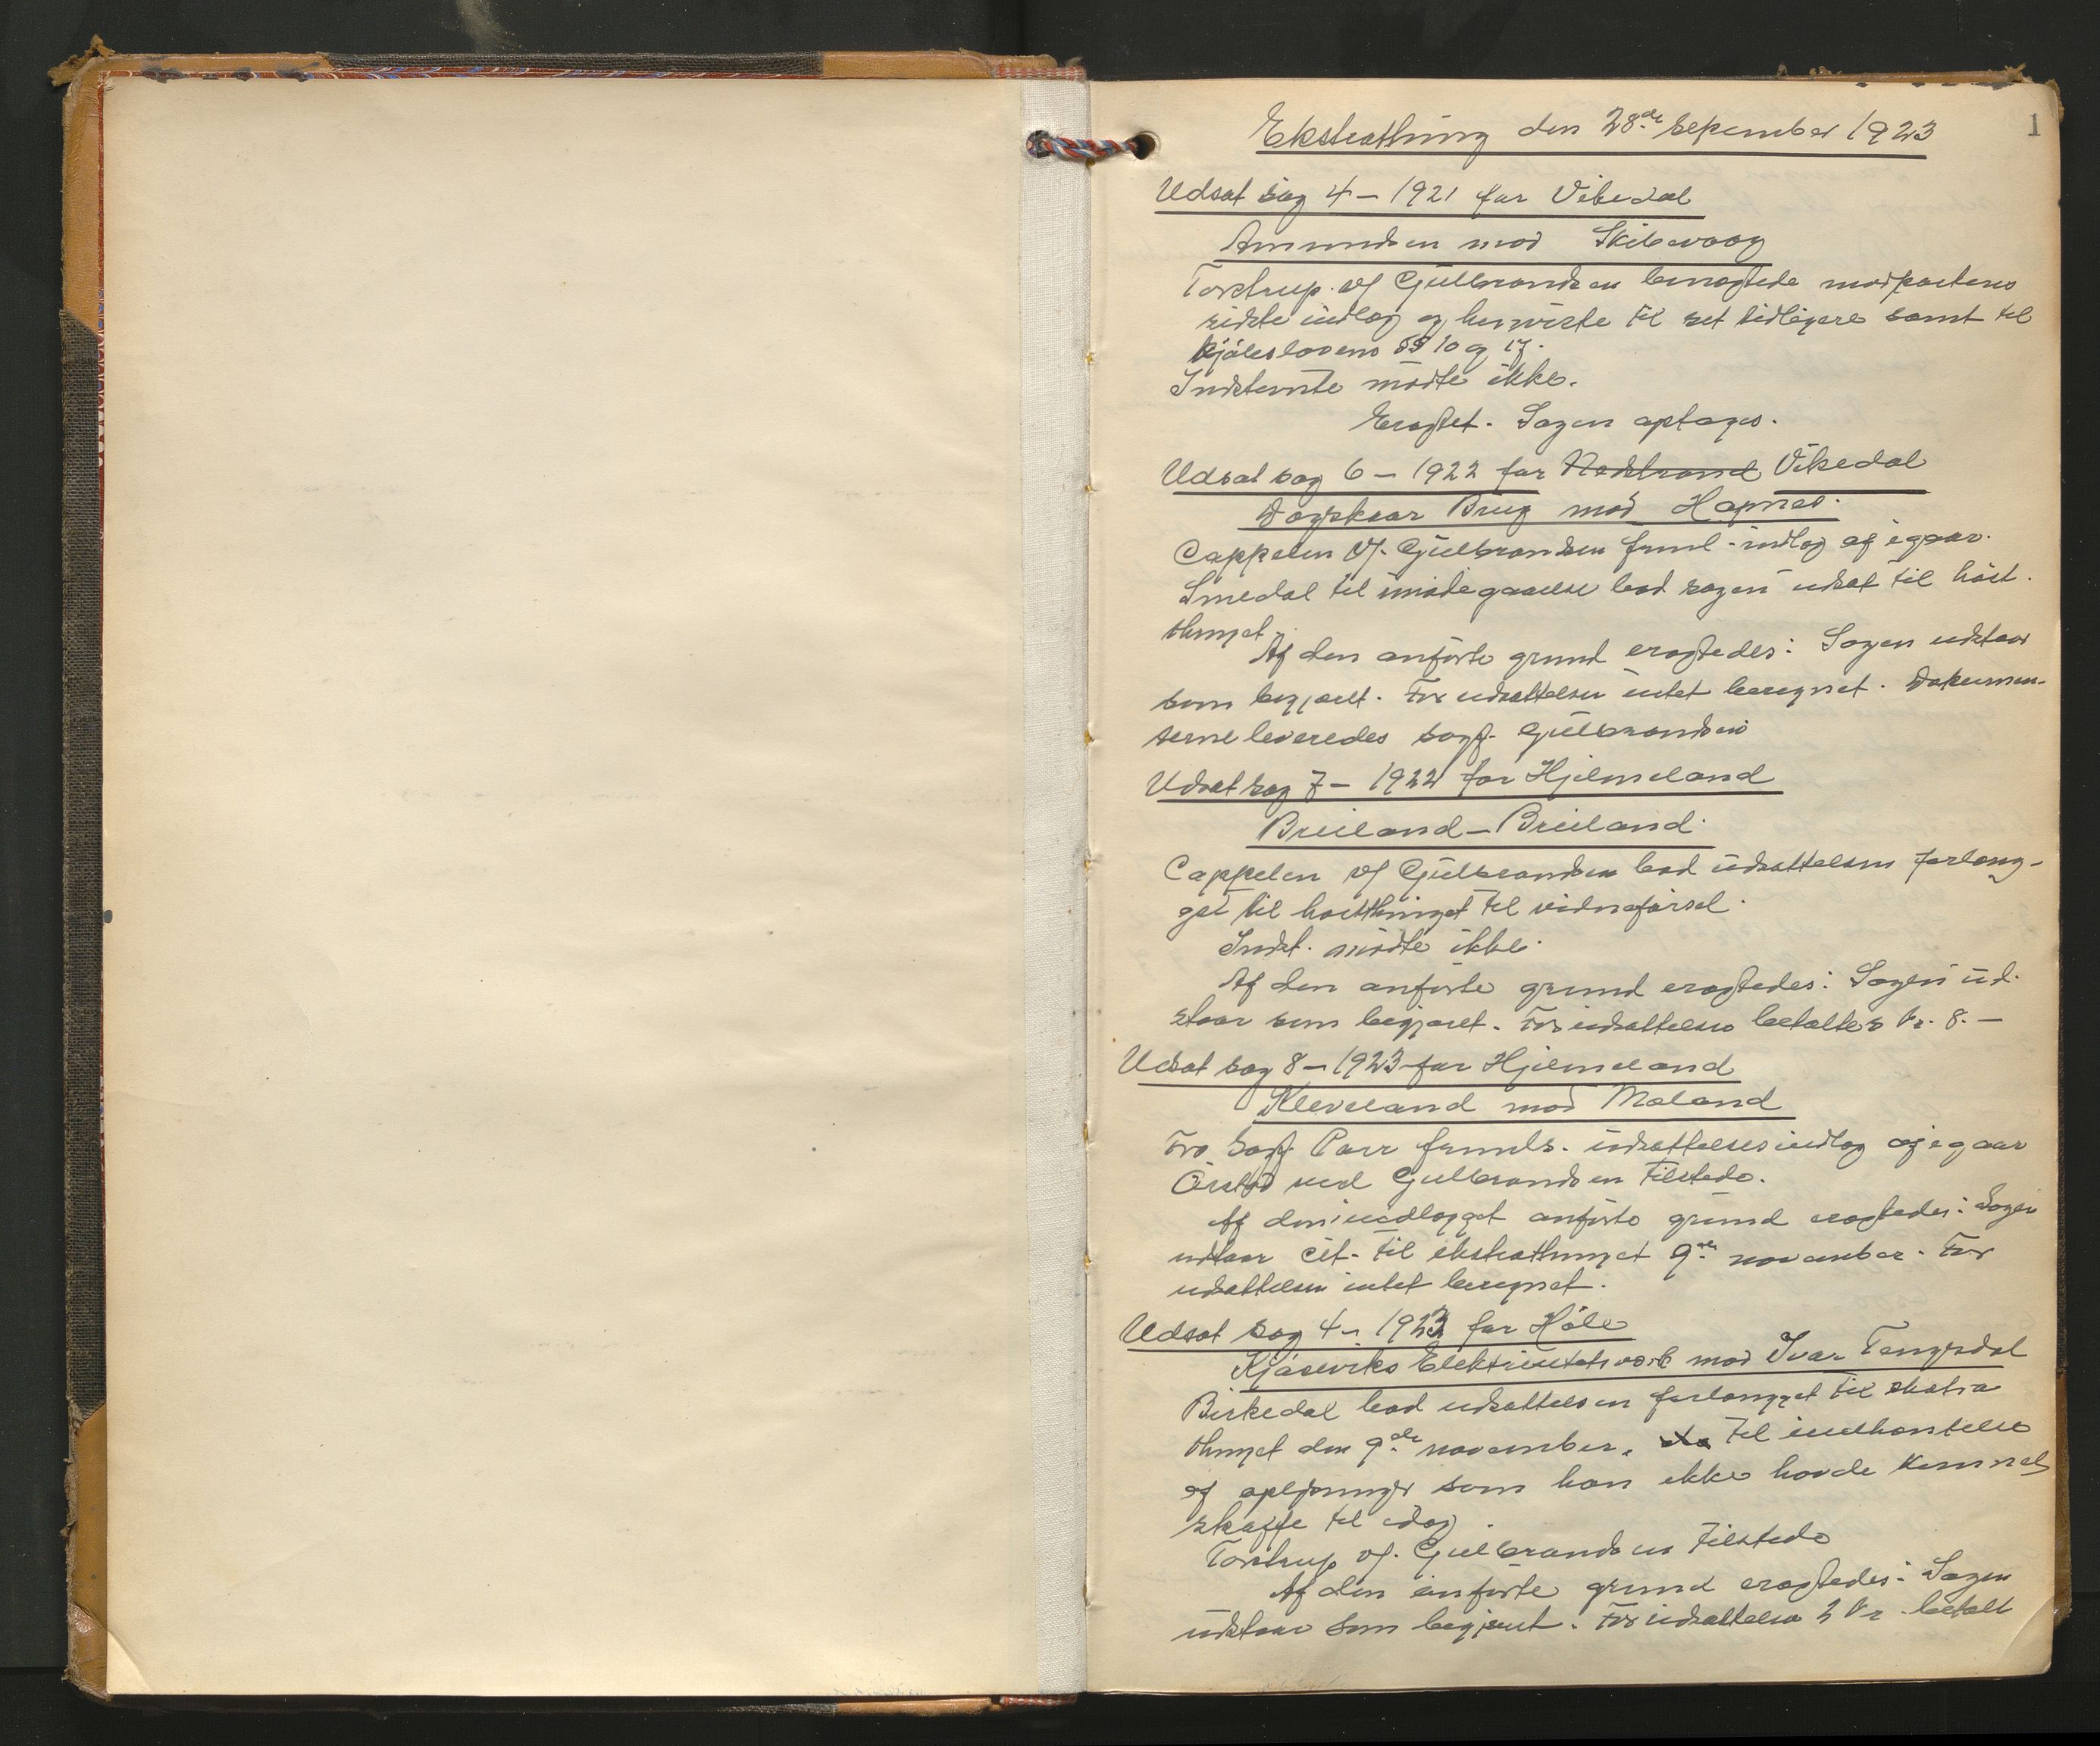 1
Ekstrathing den 28de september 1923
Udsat sag 4 – 1921 for Vikedal
Amundsen mod Skibevaag
Torstrup vf Gulbrandsen benægtede modpartens
sidste indlæg og henviste til set tidligere samt til
kjøleslovens §§ 10 og 17.
Indstevnte mødte ikke.
Eragtet. Sagen optages.
Udsat sag 6 – 1922 for Nedstrand Vikedal
Dagskaar Brug mod Hapnes.
Cappelen vf. Gulbrandsen freml. indlæg af igaar.
Smedal til imødegaaelse bad sagen udsat til høst-
thinget.
Af den anførte grund eragtedes: Sagen udstaar
som begjært. For udsættelsen intet beregnet. Dokumen-
terne leveredes sagf. Gulbrandsen
Udsat sag 7 – 1922 for Hjelmeland
Breiland – Breiland.
Cappelen vf Gulbrandsen bad udsættelsen forlæng-
get til høstthinget til vidneførsel.
Indst. mødte ikke.
Af den anførte grund eragtedes: Sagen ud-
staar som begjært. For udsættelsen betaltes kr. 8.–
Udsat sag 8 – 1923 for Hjelmeland
Kleveland mod Mæland
Fra Sagf. Parr fremls. udsættelsesindlæg af igaar
Ørstad ved Gulbrandsen tilstede.
Af den i indlægget anførte grund eragtedes: Sagen
udstaar cit. til ekstrathinget 9de november. For
udsættelsen intet beregnet.
Udsat sag 4 – 1923 for Høle
Kjøsviks Elektricitetsverk mod Ivar Tengesdal
Birkedal bad udsættelsen forlænget til ekstra
thinget den 9de november, til indhentelse
af oplysninger som han ikke havde kunnet
skaffe til idag.
Torstrup vf. Gulbrandsen tilstede
Af den anførte grund eragtedes: Sagen
udstaar som begjært. For udsættelsen 2 kr. betalt